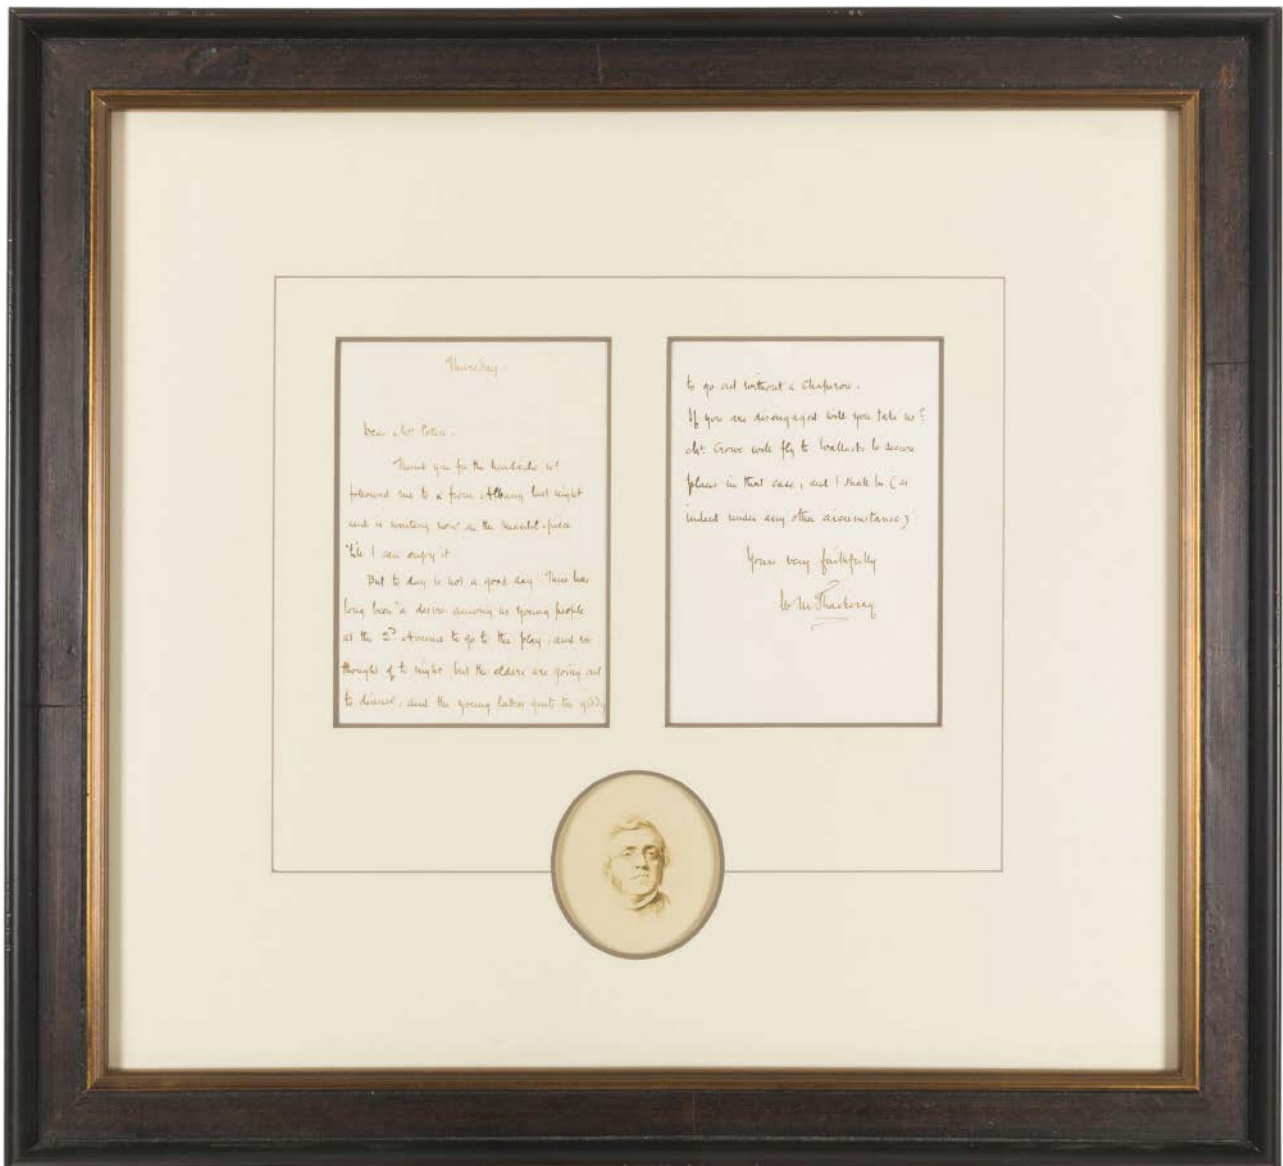 Thursday.
Dear Mr
Thank you for the headache wh
followed me to & from Albany last night
and is waiting now on the mantel-piece
till I can enjoy it.
But to day is not a good day. There has
long been a desire among us young people
at the 2d Avenue to go to the play, and we
thought of to night but the elders are going out
to dinner, and the young ladies quite too giddy
to go out without a Chaperon.
If you are disengaged will you take us?
Mr. Crowe will fly to Wallacks to secure
places in that case, and I shall be (as
indeed under any other circumstance)
Yours very faithfully
W M Thackeray